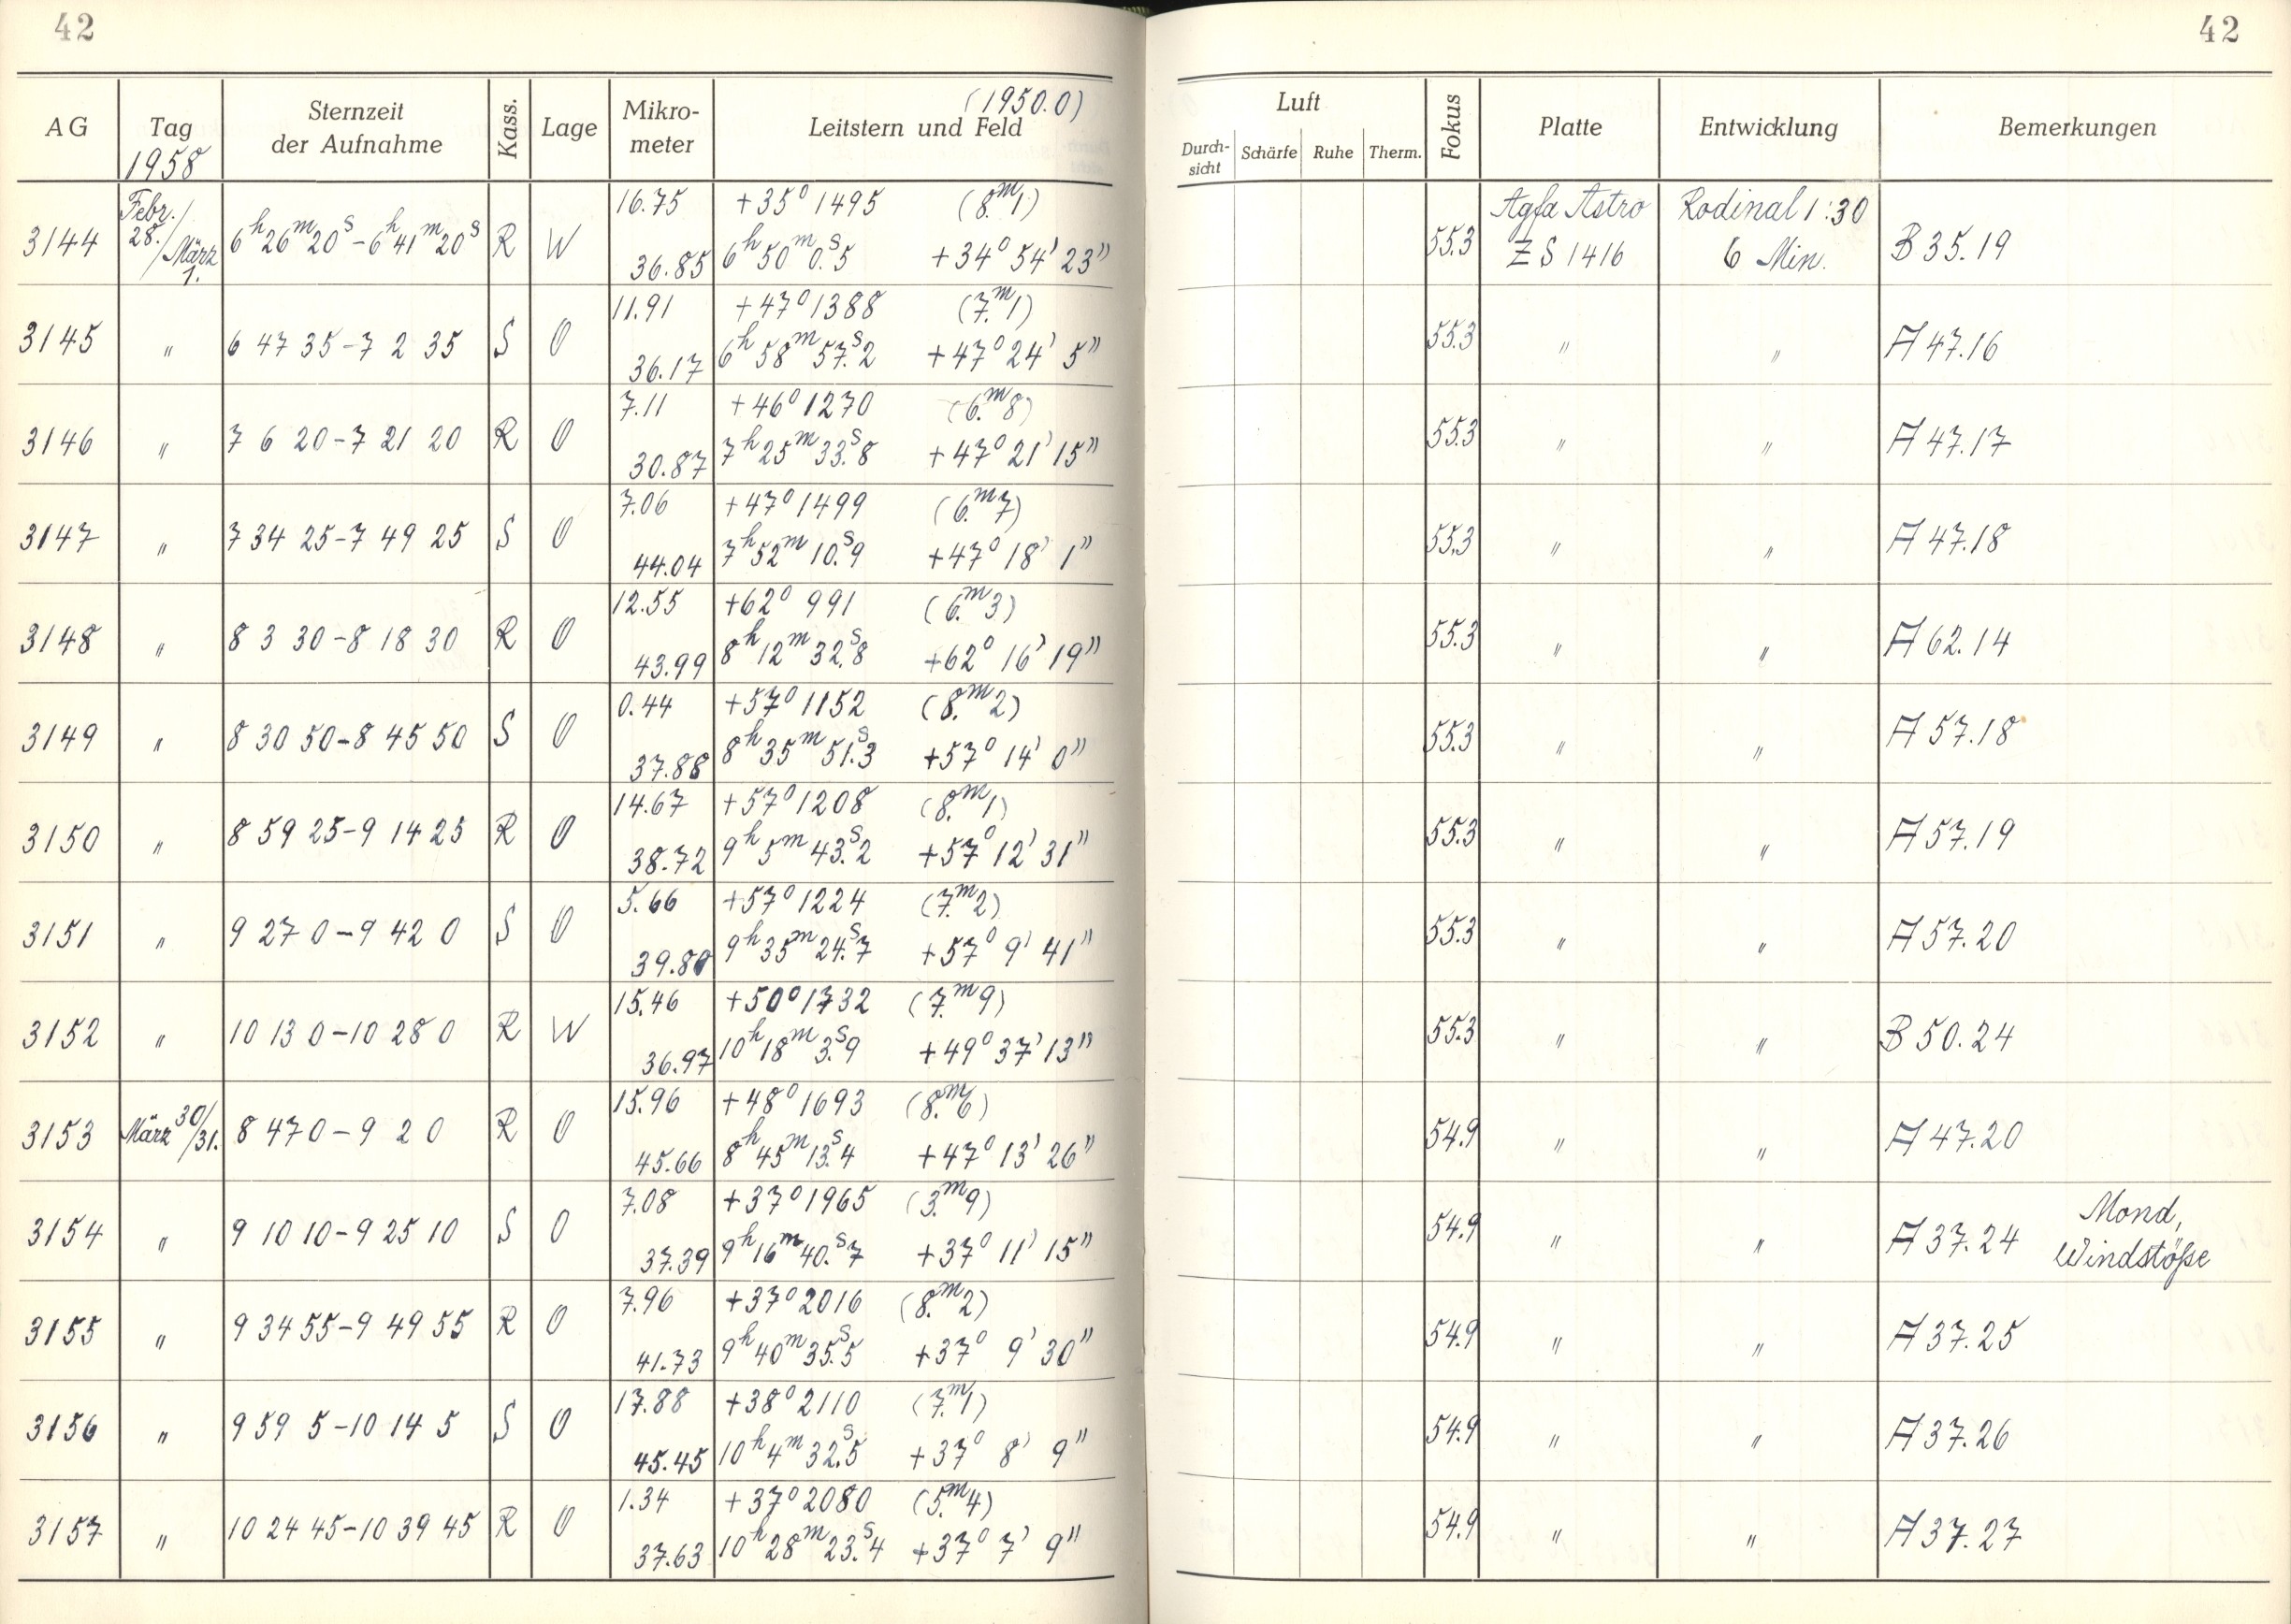 42
42
AG Tag Sternzeit der Aufnahme Kass. Lage Mikro- meter Leitstern und Feld (1950.0)
1958
Luft
Durch- sicht Schärfe Ruhe Therm. Fokus Platte Entwicklung Bemerkungen
Febr. 16.75 +35° 1495 (8.m1) Agfa Astro Rodinal 1:30
3144 28./März 1. 6h26m20s-6h41m20s R W 36.85 6h50m0.s5 +34°54'23" 55.3 ZS 1416 6 Min. B 35.19
11.91 +47° 1388 (7.m1)
3145 " 6 47 35-7 2 35 S O 36.17 6h58m57.s2 +47°24' 5" 55.3 " " A 47.16
7.11 +46° 1270 (6.m8)
3146 " 7 6 20-7 21 20 R O 30.87 7h25m33.s8 +47°21'15" 55.3 " " A 47.17
7.06 +47° 1499 (6.m7)
3147 " 7 34 25-7 49 25 S O 44.04 7h52m10.s9 +47°18' 1" 55.3 " " A 47.18
12.55 +62° 991 (6.m3)
3148 " 8 3 30-8 18 30 R O 43.99 8h12m32.s8 +62°16'19" 55.3 " " A 62.14
0.44 +57° 1152 (8.m2)
3149 " 8 30 50-8 45 50 S O 37.88 8h35m51.s3 +57°14' 0" 55.3 " " A 57.18
14.67 +57° 1208 (8.m1)
3150 " 8 59 25-9 14 25 R O 38.72 9h5m43.s2 +57°12'31" 55.3 " " A 57.19
5.66 +57° 1224 (7.m2)
3151 " 9 27 0-9 42 0 S O 39.80 9h35m24.s7 +57° 9'41" 55.3 " " A 57.20
15.46 +50° 1732 (7.m9)
3152 " 10 13 0-10 28 0 R W 36.97 10h18m3.s9 +49°37'13" 55.3 " " B 50.24
15.96 +48° 1693 (8.m6)
3153 März 30/31. 8 47 0-9 2 0 R O 45.66 8h45m13.s4 +47°13'26" 54.9 " " A 47.20
7.08 +37° 1965 (3.m9) Mond,
3154 " 9 10 10-9 25 10 S O 37.39 9h16m40.s7 +37°11'15" 54.9 " " A 37.24 Windstöße
7.96 +37° 2016 (8.m2)
3155 " 9 34 55-9 49 55 R O 41.73 9h40m35.s5 +37° 9'30" 54.9 " " A 37.25
17.88 +38° 2110 (7.m1)
3156 " 9 59 5-10 14 5 S O 45.45 10h4m32.s5 +37° 8' 9" 54.9 " " A 37.26
1.34 +37° 2080 (5.m4)
3157 " 10 24 45-10 39 45 R O 37.63 10h28m23.s4 +37° 7' 9" 54.9 " " A 37.27